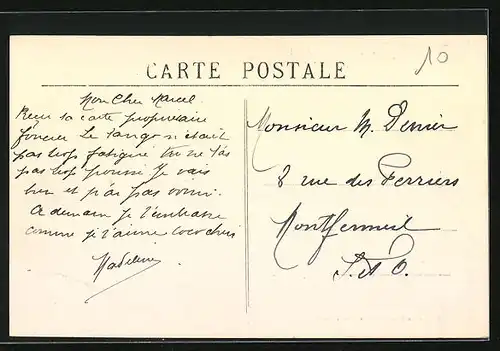 10
CARTE POSTALE
Mon Cher Marcel
Reçu ta carte propriétaire
foncier Le tango n'était
pas trop fatigué tu ne l'as
pas trop poussé Je vais
bien et n'ai pas vomi.
A demain je t'embrasse
comme je t'aime coco cheri
Madeleine
Monsieur M. Denier
8 rue des Perriers
Montfermeil
S. et O.